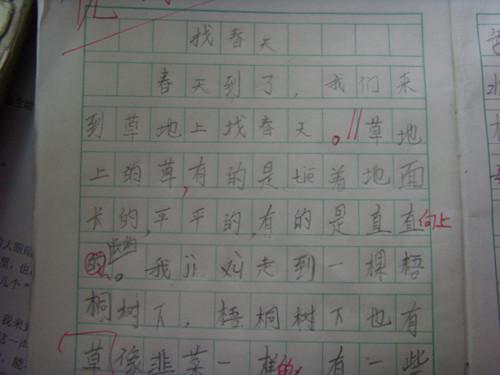 找春天
春天到了，我们来
到草地上找春天。草地
上的草,有的是tiē着地面
长的,平平的,有的是直直向上
的长的。我jì xù走到一棵梧
桐树下，梧桐树下也有
草像韭菜一样的,有一些